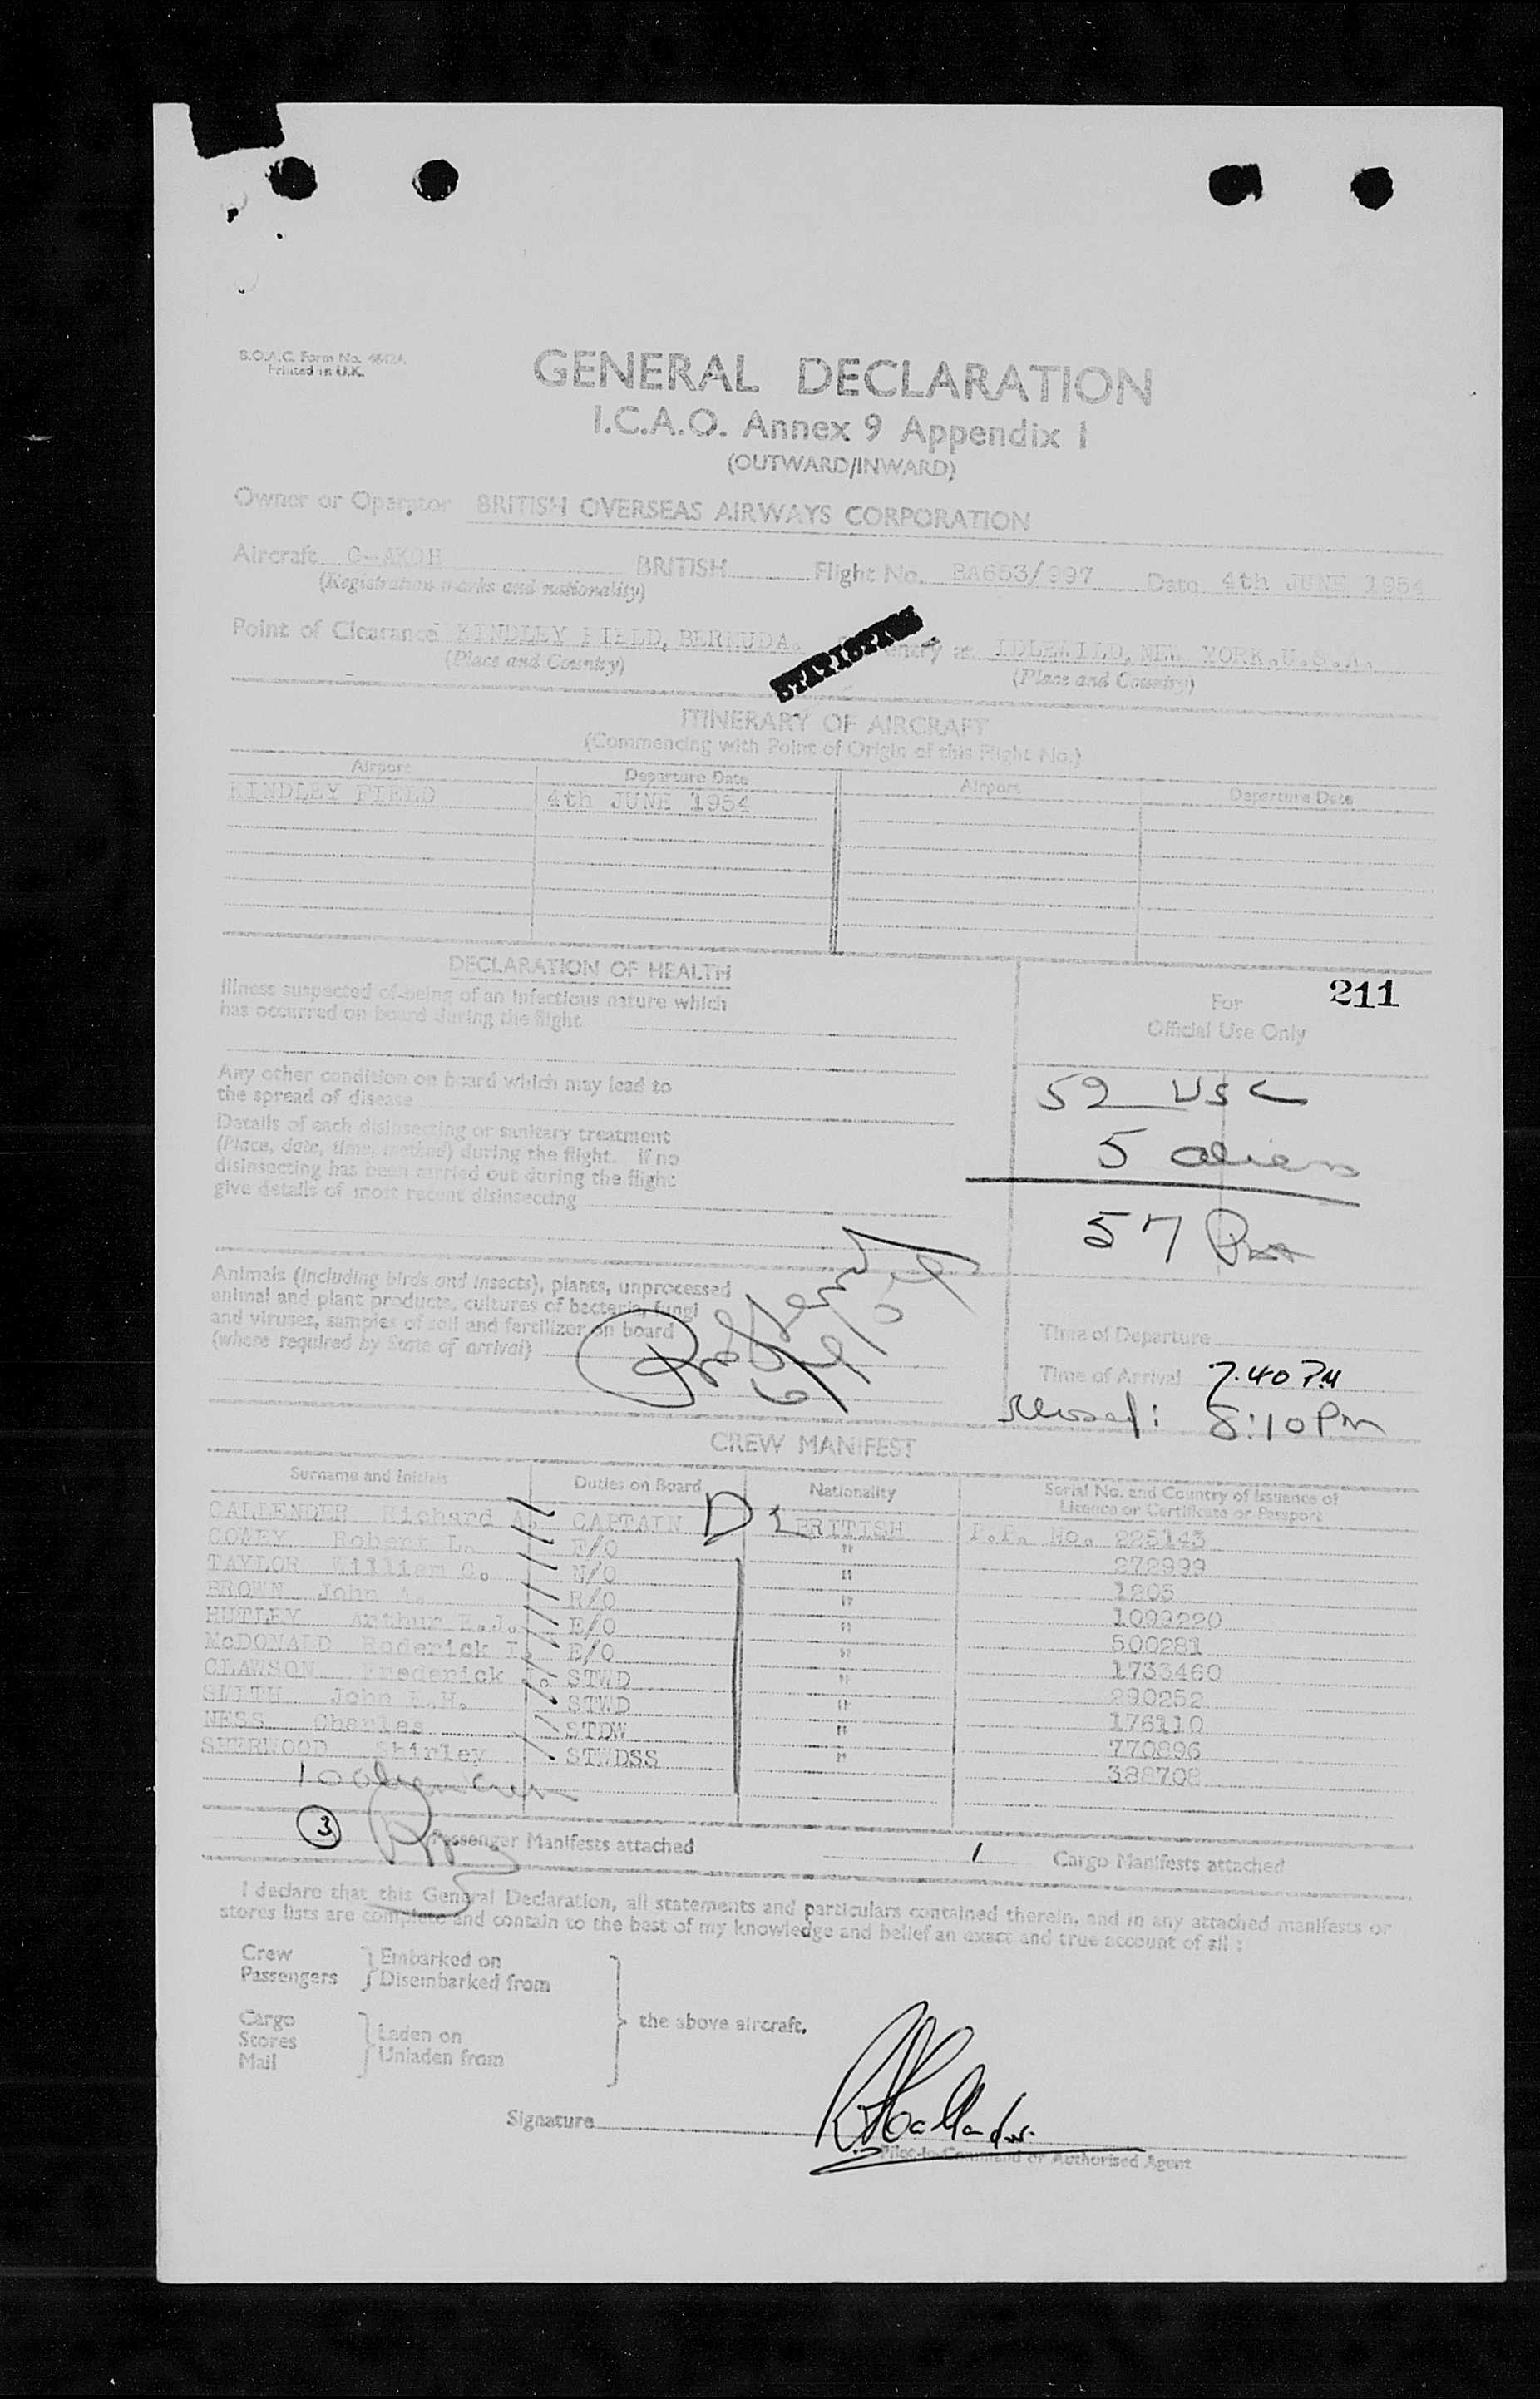 B.O.A.C. Form No.
Printed in U.K.
GENERAL DECLARATION
I.C.A.O. Annex 9 Appendix 1
(OUTWARD/INWARD)
Owner or Operator BRITISH OVERSEAS AIRWAYS CORPORATION
Aircraft G-AKGH BRITISH Flight No. BA653/997 Date 4th JUNE 1954
(Registration marks and nationality)
Point of Clearance KINDLEY FIELD, BERMUDA. entry at IDLEWILD, NEW YORK. U.S.A.
(Place and Country) (Place and Country)
STATISTICS
ITINERARY OF AIRCRAFT
(Commencing with Point of Origin of this Flight No.)
Airport Departure Date Airport Departure Date
KINDLEY FIELD 4th JUNE 1954
DECLARATION OF HEALTH
Illness suspected of being of an infectious nature which
has occurred on board during the flight
For 211
Official Use Only
Any other condition on board which may lead to
the spread of disease
52 USC
Details of each disinsecting or sanitary treatment
(Place, date, time, method) during the flight. If no
disinsecting has been carried out during the flight
give details of most recent disinsecting
5 aliens
57
Animals (including birds and insects), plants, unprocessed
animal and plant products, cultures of bacteria, fungi
and viruses, samples of soil and fertilizer on board
(where required by State of arrival)
Time of Departure
Time of Arrival 7.40 PM
8:10 PM
CREW MANIFEST
Surname and Initials Duties on Board Nationality Serial No. and Country of Issuance of
Licence or Certificate or Passport
CALLENDER Richard A. CAPTAIN D 1 BRITISH P.P. No. 225143
COWEY Robert L. F/O " 272999
TAYLOR William G. N/O " 1205
BROWN John A. R/O " 1099220
HUTLEY Arthur E.J. E/O " 500281
McDONALD Roderick I. E/O " 1733460
CLAWSON Frederick STWD " 290252
SMITH John E.H. STWD " 176110
NESS Charles STDW " 770896
SHERWOOD Shirley STWDSS " 388708
10
3 Passenger Manifests attached 1 Cargo Manifests attached
I declare that this General Declaration, all statements and particulars contained therein, and in any attached manifests or
stores lists are complete and contain to the best of my knowledge and belief an exact and true account of all :
Crew Embarked on
Passengers Disembarked from
the above aircraft.
Cargo
Stores Laden on
Mail Unladen from
Signature
Pilot-in-Command or Authorised Agent